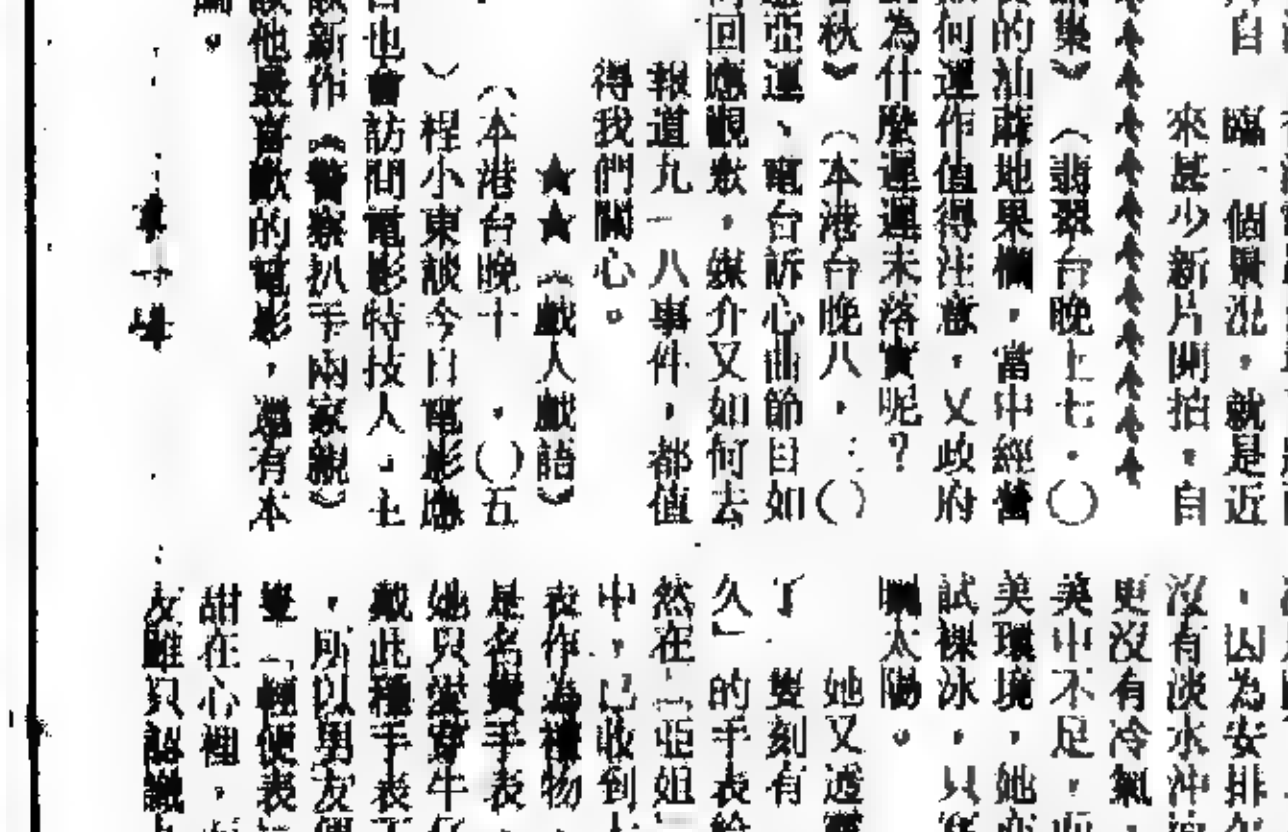 自
臨一個景況，就是近
來甚少新片開拍，自
集》（翡翠台晚上七．〇
的油蔴地果欄，當中經營
何運作值得注意，又政府
為什麼遲遲未落實呢？
秋》（本港台晚八．三〇）
亞運、電台訴心曲節目如
回應觀眾，媒介又如何去
報道九一八事件，都值
得我們關心。
★★《戲人戲語》
（本港台晚十．〇五
）程小東談今日電影
也會訪問電影特技人
新作《警察扒手兩家親》
他最喜歡的電影，還有本
。
，因為安排
沒有淡水沖
更沒有冷氣
美中不足，而
美環境，她
試裸泳，只
曬太陽。
她又透
了 雙刻有
久」的手表
然在「亞姐
中，已收到
表作為禮物
是名貴手表
她只愛穿牛
戴此種手表
，所以男友
雙「輕便表
甜在心裡，
友雖只認識